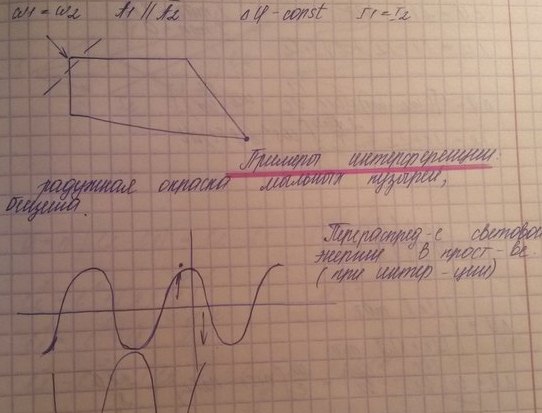 ω1 = ω2 A1 || A2 Δφ - const I1 = I2
Примеры интерференции.
радужная окраска мыльных пузырей,
Перераспред-е световой
энергии в прост-ве.
(при интер-ции)